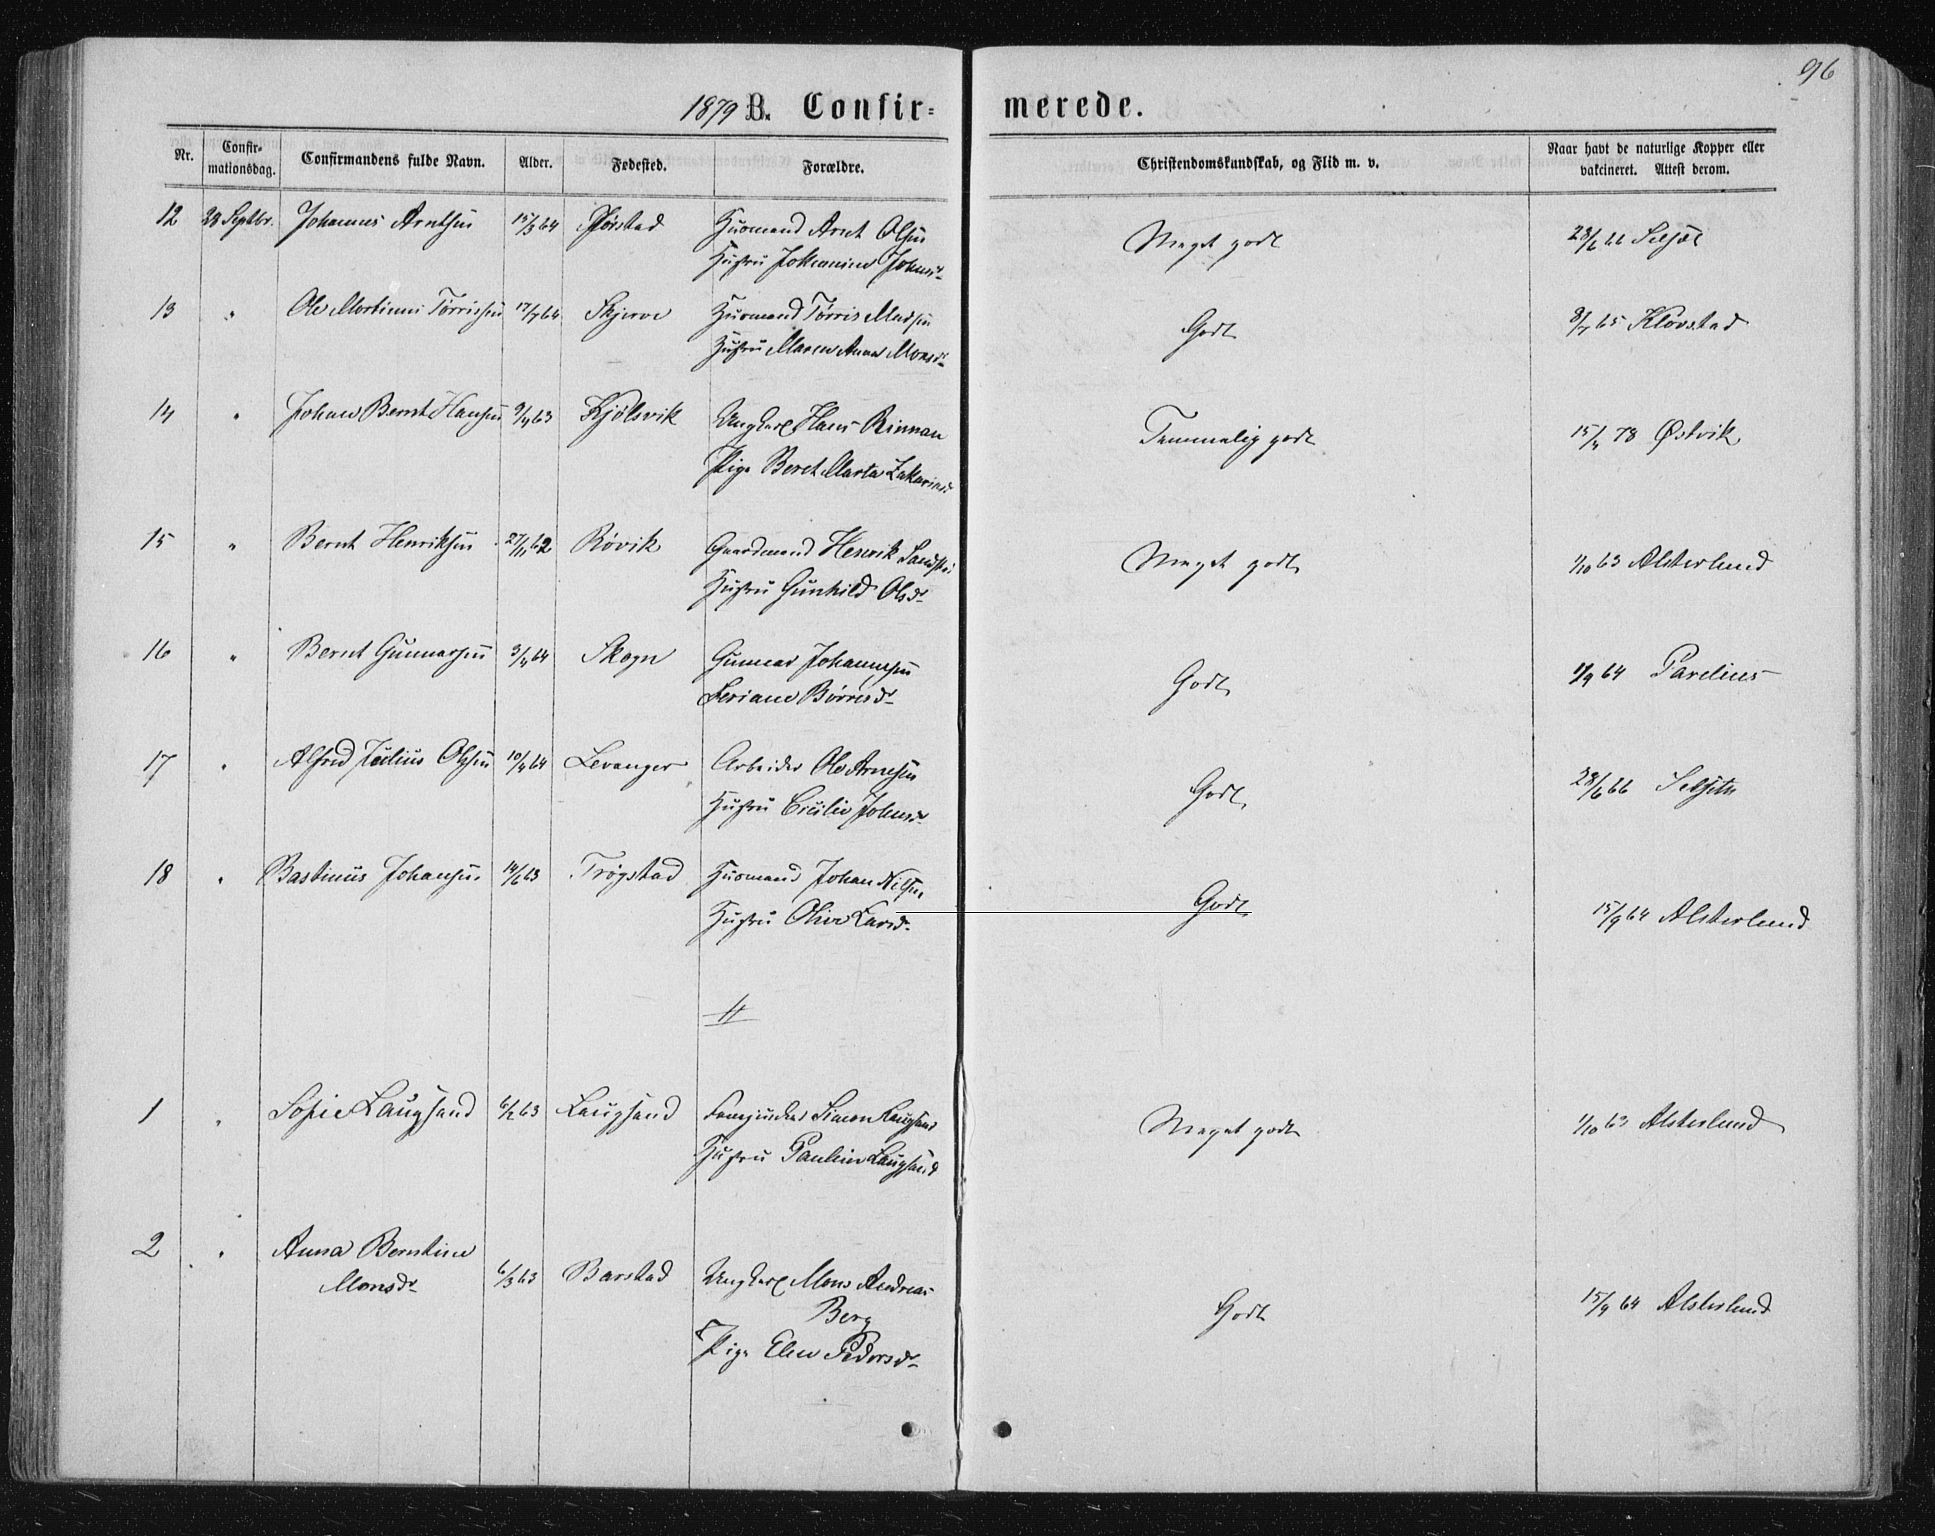 96
1879 B. Confir= merede.
Nr. Confir-mationsdag. Confirmandens fulde Navn. Alder. Fødested. Forældre. Christendomskundskab, og Flid m. v. Naar havt de naturlige Kopper eller vakcineret. Attest derom.
12 28 Septbr. Johannes Arntsen 15/3 64 Husmand Arnt Olsen Meget godt 28/6 66
Hustru Johanna Johnsd.
13 " Ole Martinus Tørrissen 17/7 64 Skjerve Husmand Tørris Madsen Godt 8/7 65 Klovstad
Hustru Maren Anna Monsd.
14 " Johan Bernt Hansen 9/4 63 Kjølsvik Ungkarl Hans Rinnan Temmelig godt 15/4 78 Østvik
Pige Beret Marta Zakariasd.
15 " Bernt Henriksen 27/11 62 Røvik Gaardmand Henrik Meget godt 1/10 63 Alsterlund
Hustru Gunhild Olsd.
16 " Bernt Gunnarsen 3/4 64 Skogn Gunnar Johannesen Godt 1/9 64 Parelius
Seriane Børresd.
17 " Alfred Julius Olsen 10/4 64 Levanger Arbeider Ole Arnesen Godt 28/6 66
Hustru Cecilie Johnsd.
18 " Bastinus Johansen 14/6 63 Trøgstad Husmand Johan Nilsen Godt 15/9 64 Alsterlund
Hustru Olive Larsd.
1 " Sofie Laugsand 6/2 63 Laugsand Simon Laugsand Meget godt 1/10 63 Alsterlund
Hustru Pauline Laugsand
2 " Anna Berntine
Monsd. 6/3 63 Barstad Ungkarl Mons Andreas
Berg Godt 15/9 64 Alsterlund
Pige Elen Pedersd.